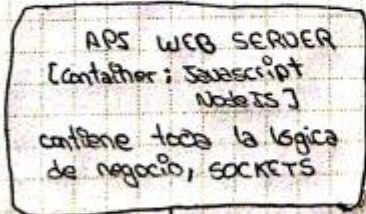 API WEB SERVER
[Container: Javascript
NodeJS]
contiene toda la lógica
de negocio, SOCKETS